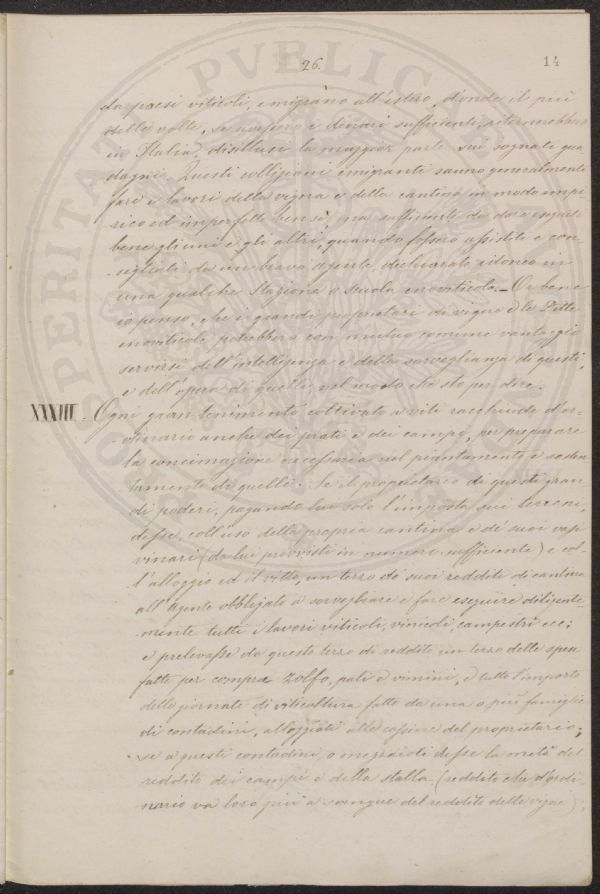 26.
14
da paesi viticoli, emigrano all'estero, donde il più
delle volte, se avessero i denari sufficienti, ritornerebbero
in Italia, disillusi la maggior parte sui sognati gua-
dagni. Questi emigranti sanno generalmente
fare i lavori della vigna e della cantina in modo empi-
rico ed imperfetto bensì, ma sufficiente da dare eseguite
bene gli uni e gli altri, quando fossero assistiti e con-
sigliati da un bravo agente, dichiarato idoneo in
una qualche Stazione o Scuola enoviticola. - Or bene
io penso, che i grandi proprietari di vigne e le Ditte
enoviticole potrebbero con molto comune vantaggio
servirsi dell'intelligenza e della sorveglianza di questi,
e dell'opera di quelli, nel modo che sto per dire.
XXXIII. - Ogni gran tenimento coltivato a viti racchiude d'or-
dinario anche dei prati e dei campi, per preparare
la concimazione necessaria nel piantamento e
di quelle. Se il proprietario di questi gran-
di poderi, pagando lui solo l'imposta sui terreni,
desse, coll'uso della propria cantina e de' suoi vasi
vinari (da lui provvisti in numero sufficiente) e col-
l'alloggio ed il vitto, un terzo de' suoi redditi di cantina
all'Agente obbligato a sorvegliare e fare eseguire diligente-
mente tutti i lavori viticoli, vinicoli, campestri ecc;
e prelevasse da questo terzo di reddito un terzo delle spese
fatte per compra zolfo, pali e vimini, e tutto l'importo
delle giornate di viticoltura fatte da una o più famiglie
di contadini, alloggiati alle cascine del proprietario;
se a questi contadini, o mezzaioli desse la metà del
reddito dei campi e della stalla (reddito che d'ordi-
nario va loro più a sangue del reddito delle vigne),
PVBLICAE
PROSPERITATI